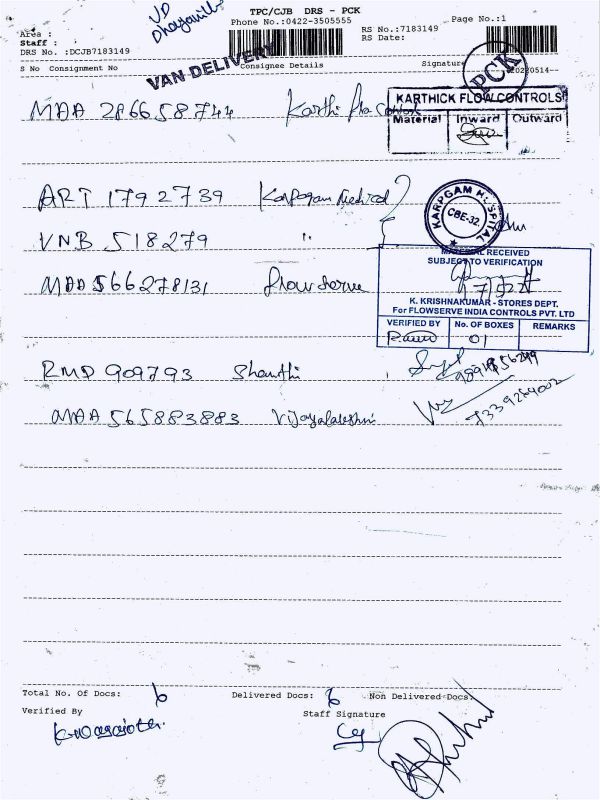 TPC/CJB DRS - PCK
Phone No.:0422-3505555
Page No.:1
RS No.:7183149
RS Date:
Area :
Staff :
DRS No. :DCJB7183149
VAN DELIVERY
S No Consignment No
Consignee Details
Signature
PCK
MAA 286658744 Karthi
KARTHICK FLOW CONTROLS
Material Inward Outward
ART 1792739 Karpagam Medical
KARPGAM HOSPITAL
CBE-32.
VNB 518279 "
MATERIAL RECEIVED
SUBJECT TO VERIFICATION
MAA 566278131 flowserve
K. KRISHNAKUMAR - STORES DEPT.
For FLOWSERVE INDIA CONTROLS PVT. LTD
VERIFIED BY No. OF BOXES REMARKS
01
RMD 909793 Shanthi
MAA 565883883 Vijayalakshmi
7339264002
Total No. Of Docs: 6 Delivered Docs: 6 Non Delivered Docs:
Verified By
Staff Signature